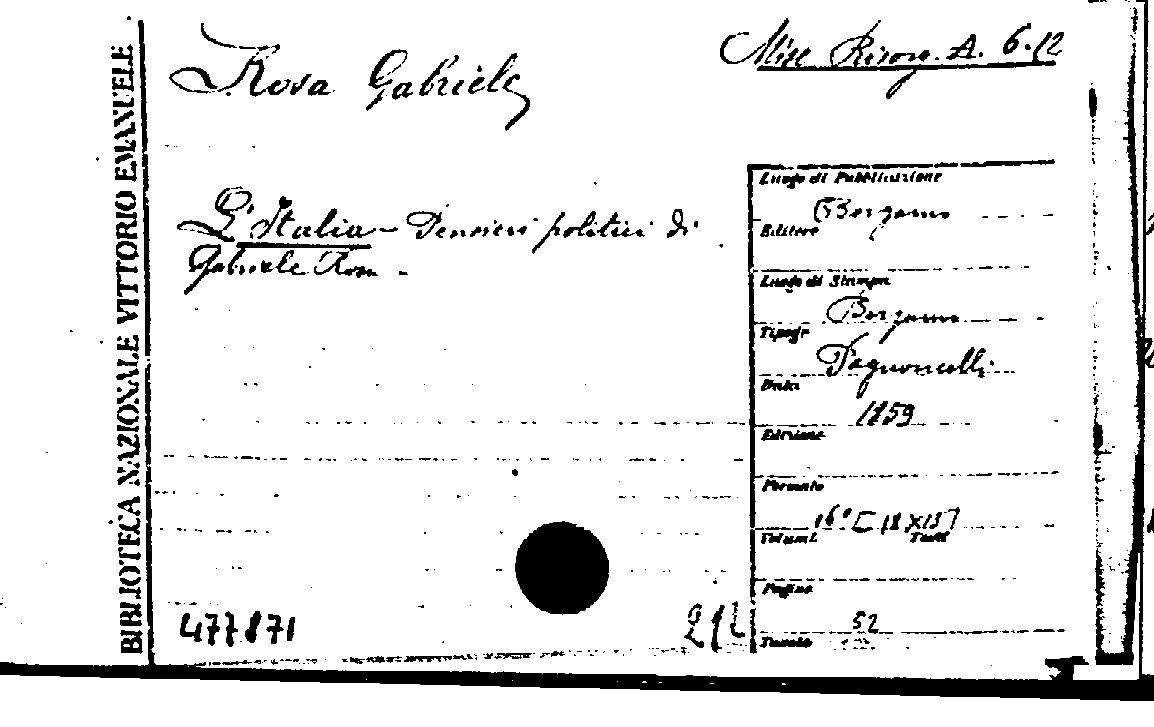 BIBLIOTECA NAZIONALE VITTORIO EMANUELE
Rosa Gabriele
Misc. Risorg. A. 6.12
L'Italia - Pensieri politici di
Gabriele Rosa -
Luogo di Pubblicazione
Bergamo
Editore
Luogo di Stampa
Bergamo
Tipogr.
Pagnoncelli
Data
1859
Edizione
Formato
16° [18X13]
Volumi
Tomi
Pagine
52
Tavole
477871
212